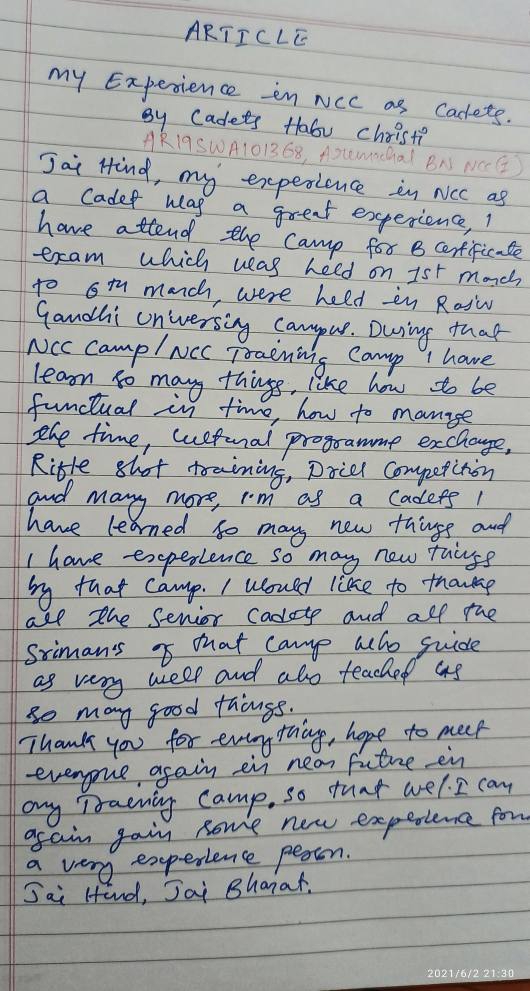 ARTICLE
My Experience in NCC as Cadets.
By Cadets Habu Christi
AR19SWA101368, Arunachal BN NCC(I)
Jai Hind, my experience in NCC as
a Cadet was a great experience, I
have attend the Camp for B certificate
exam which was held on 1st march
to 6th march, were held in Rajiv
Gandhi University campus. During that
NCC Camp/NCC Training Camp I have
learn so many things, like how to be
functual in time, how to manage
the time, cultural programme exchange,
Rifle shot training, Drill Competition
and many more, I'm as a Cadets I
have learned so many new things and
I have experience so many new things
by that Camp. I would like to thanks
all the senior Cadets and all the
Sriman's of that camp who guide
as very well and also teached us
so many good things.
Thank you for everything, hope to meet
everyone again in near future in
any Training Camp, so that we/I can
again gain some new experience from
a very experience person.
Jai Hind, Jai Bharat.
2021/6/2 21:30